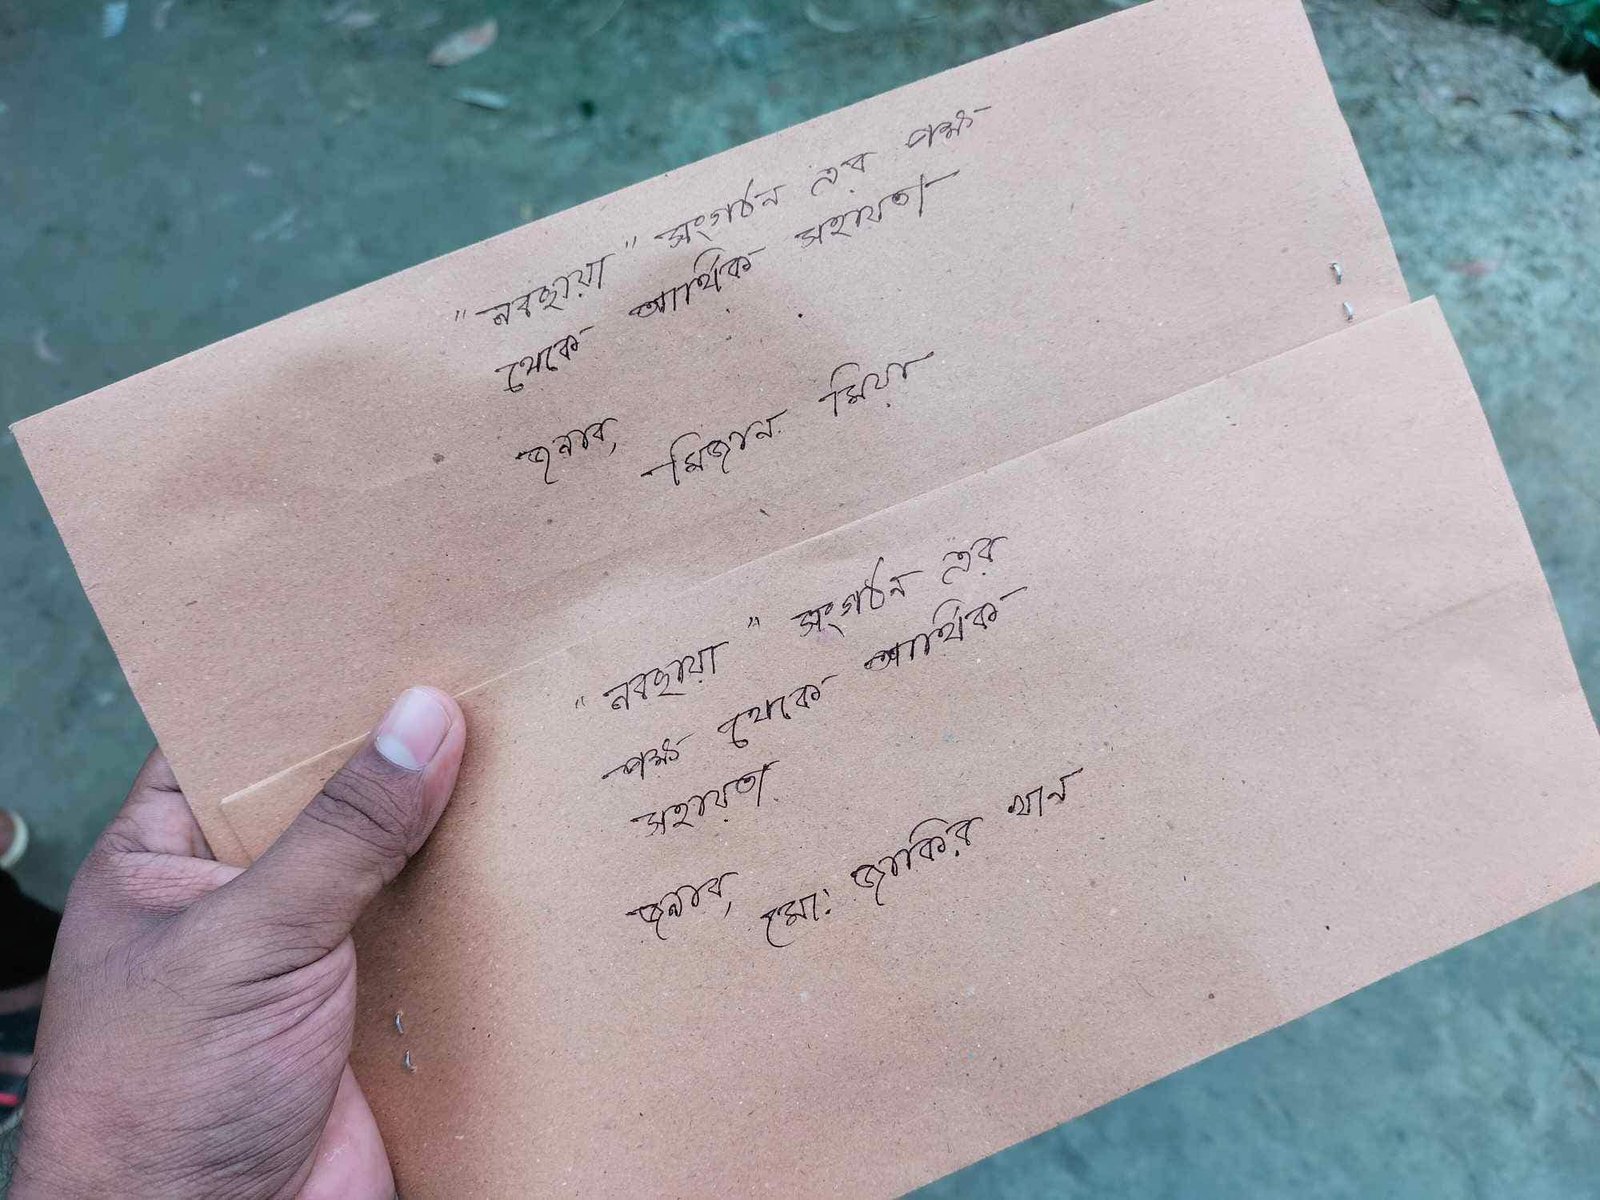 "নবছায়া" সংগঠন এর পক্ষ
থেকে আর্থিক সহায়তা
জনাব,
মিজান মিয়া
"নবছায়া" সংগঠন এর
পক্ষ থেকে আর্থিক
সহায়তা
জনাব,
মো: জাকির খান